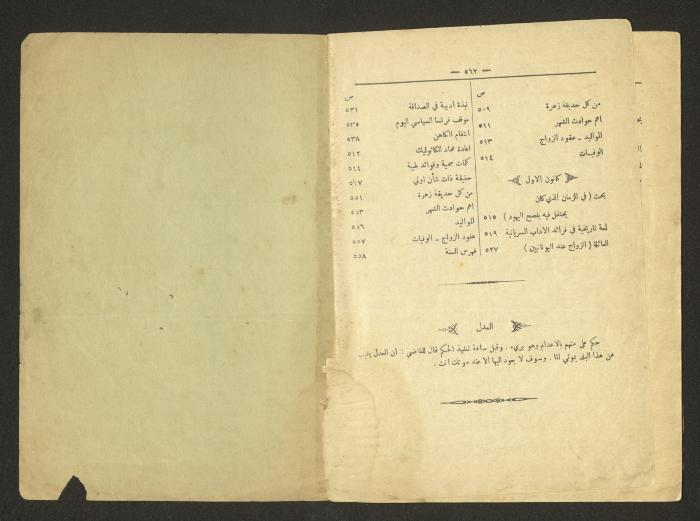 — ٥٦٢ —
ص
من كل حديقة زهرة ٥٠٩
اهم حوادث الشهر ٥١١
المواليد ــ عقود الزواج ٥١٣
الوفيات ٥١٤
كانون الاول
بحث ( في الزمان الذي كان
يحتفل فيه بفصح اليهود ) ٥١٥
لمعة تاريخية في فرائد الآداب السريانية ٥١٩
العائلة ( الزواج عند اليونانيين ) ٥٢٧
ص
نبذة ادبية في الصداقة ٥٣١
موقف فرنسا السياسي اليوم ٥٣٥
انتقام الكاهن ٥٣٨
اعادة عماد الكاثوليك ٥٤٢
كلمات صحية وفوائد طبية ٥٤٤
حقيقة ذات شأن اولي ٥٤٧
من كل حديقة زهرة ٥٥١
اهم حوادث الشهر ٥٥٣
المواليد ٥٥٦
عقود الزواج ــ الوفيات ٥٥٧
فهرس السنة ٥٥٨
العدل
حكم على متهم بالاعدام وهو بريء . وقبل ساعة تنفيذ الحكم قال للقاضي : ان العدل يغيب
من هذا البلد بموتي انا . وسوف لا يعود اليها الا عند موتك انت .